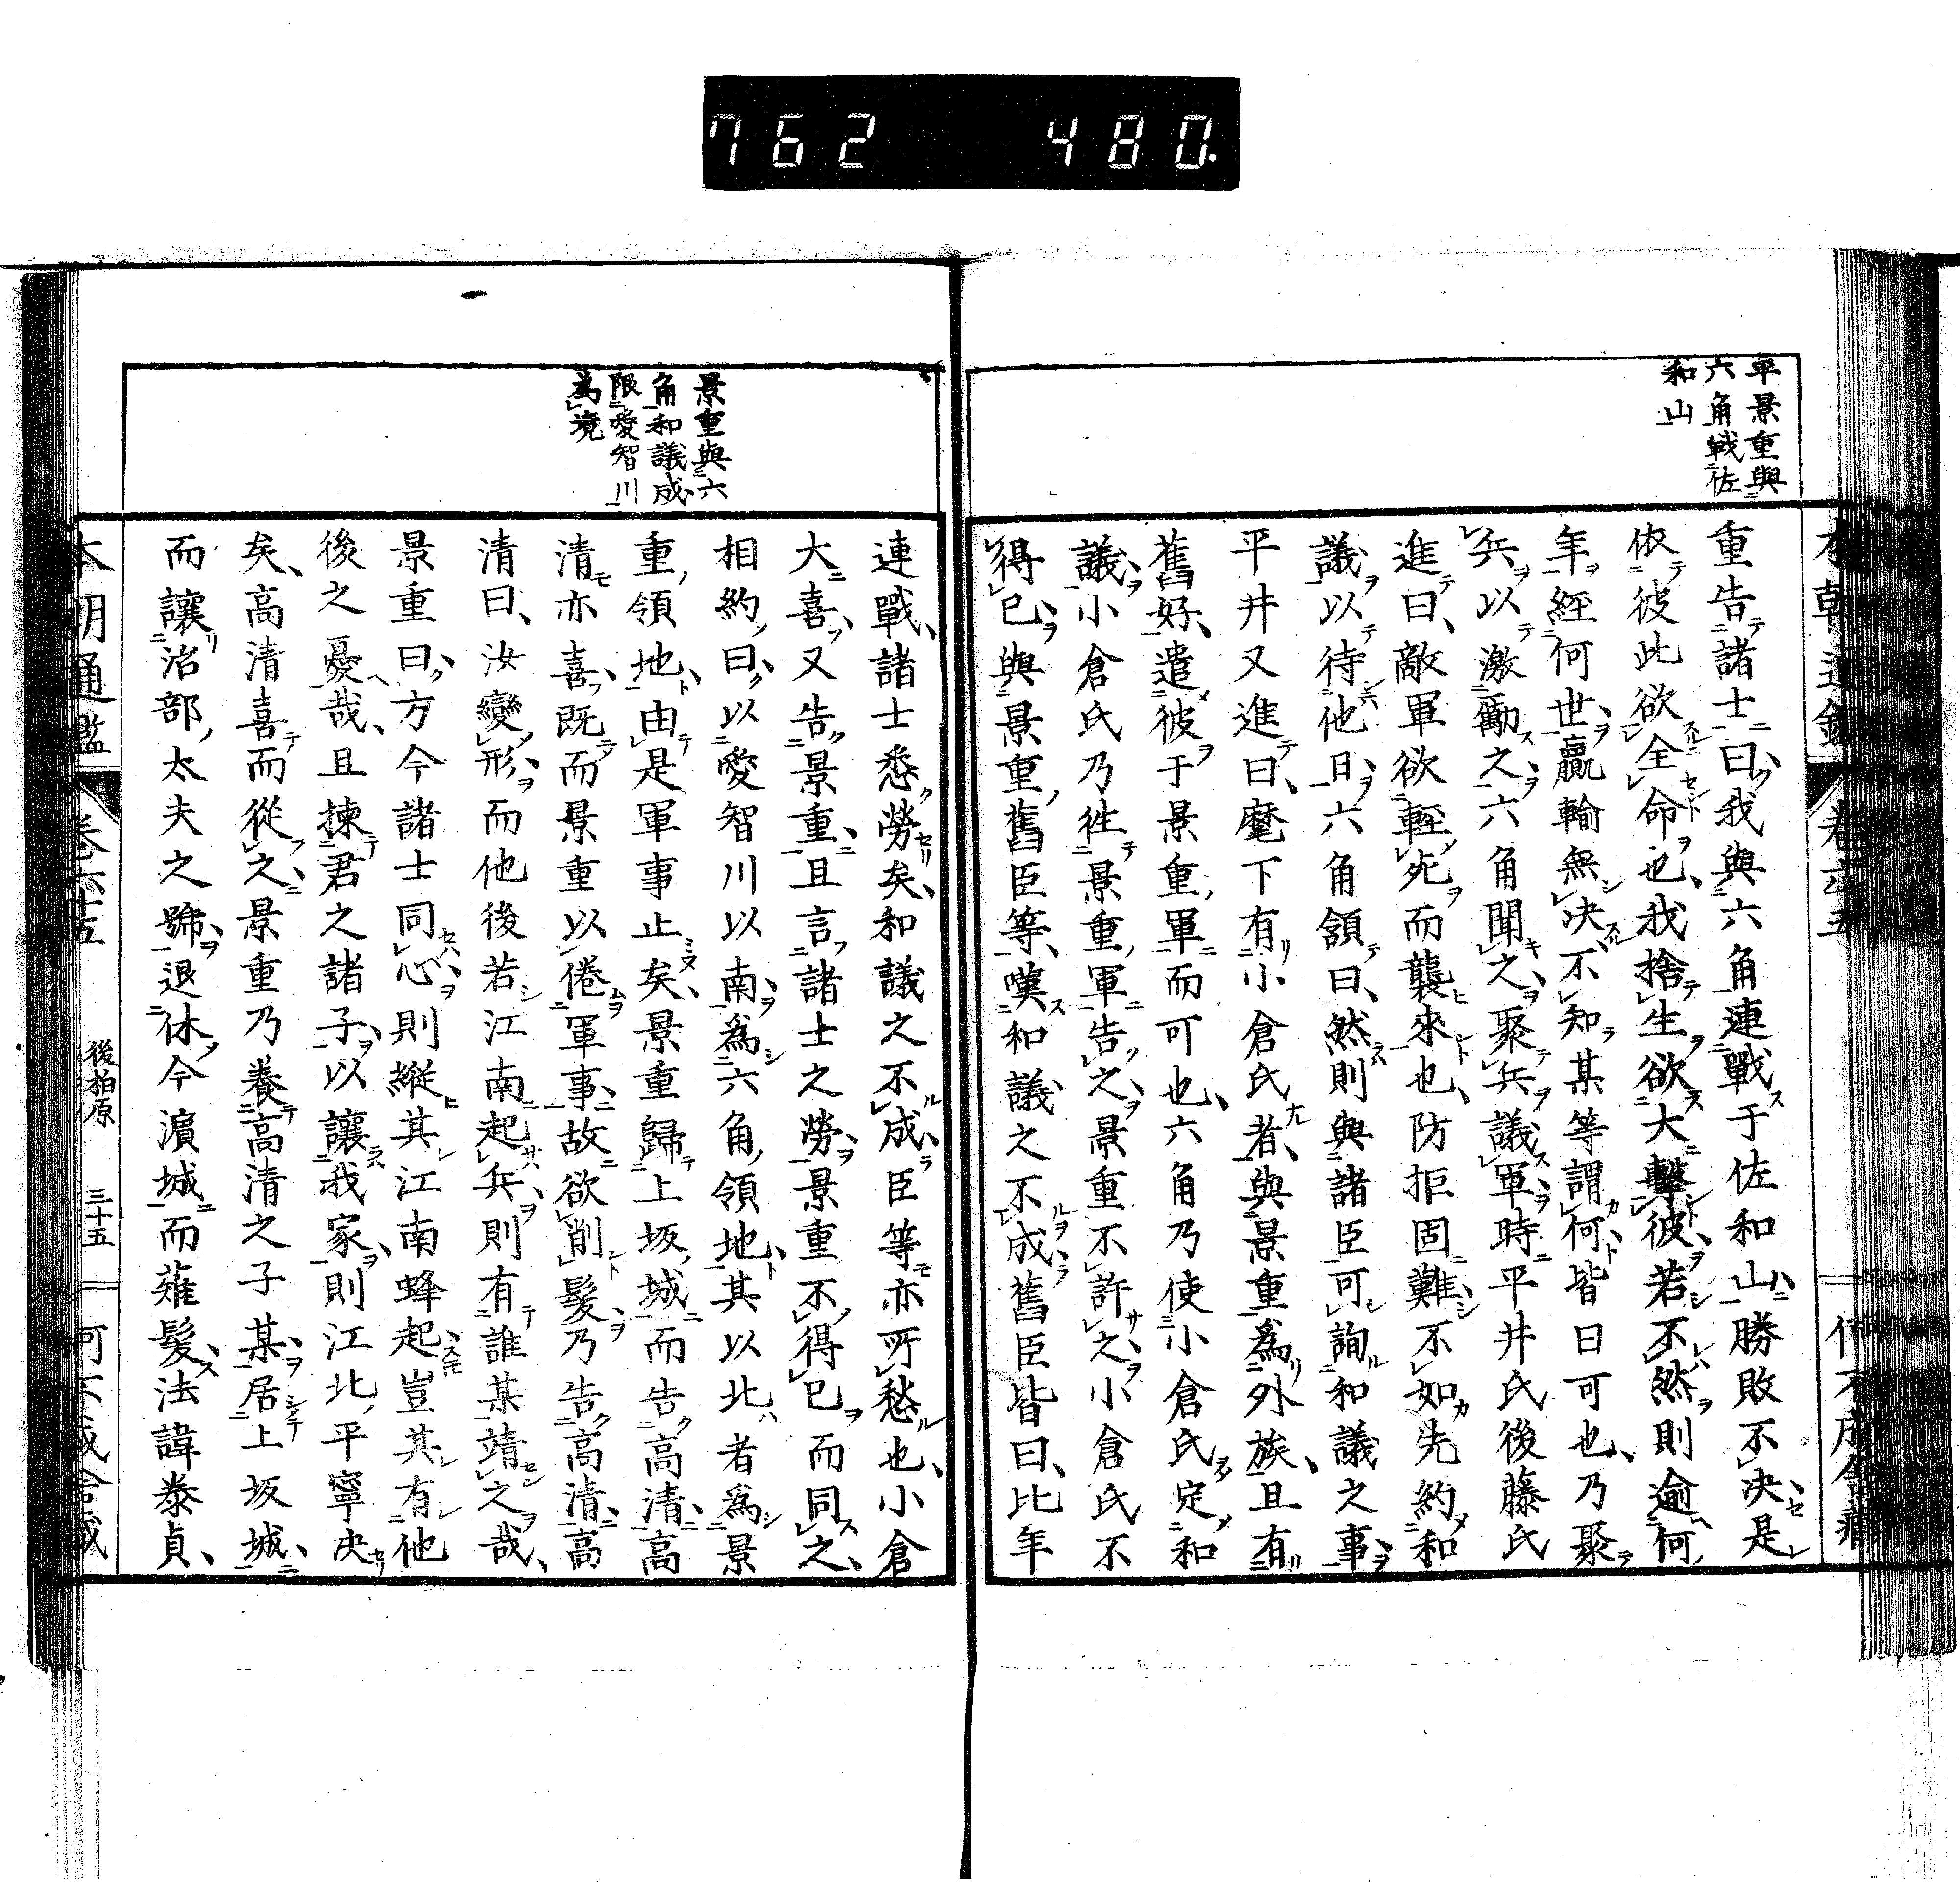 762 480.
平景重與
六角戰佐
和山
重告諸士曰我與六角連戰于佐和山勝敗不決是
依彼此欲全命也我捨生欲大擊彼若不然則逾何
年經何世贏輸無決不知某等謂何皆曰可也乃聚
兵以激勵之六角聞之聚兵議軍時平井氏後藤氏
進曰敵軍欲輕死而襲來也防拒固難不如先約和
議以待他日六角頷曰然則與諸臣可詢和議之事
平井又進曰麾下有小倉氏者與景重爲外族且有
舊好遣彼于景重軍而可也六角乃使小倉氏定和
議小倉氏乃徃景重軍告之景重不許之小倉氏不
得已與景重舊臣等嘆和議之不成舊臣皆曰比年
景重與六
角和議成
限愛智川
爲境
連戰諸士悉勞矣和議之不成臣等亦所愁也小倉
大喜又告景重且言諸士之勞景重不得已而同之
相約曰以愛智川以南爲六角領地其以北者爲景
重領地由是軍事止矣景重歸上坂城而告高清高
清亦喜既而景重以倦軍事故欲削髮乃告高清高
清曰汝變形而他後若江南起兵則有誰某靖之哉
景重曰方今諸士同心則縱其江南蜂起豈其有他
後之憂哉且揀君之諸子以讓我家則江北平寧決
矣高清喜而從之景重乃養高清之子某居上坂城
而讓治部太夫之號退休今濵城而薙髮法諱泰貞
本朝通鑑 卷六十五 後柏原 三十五